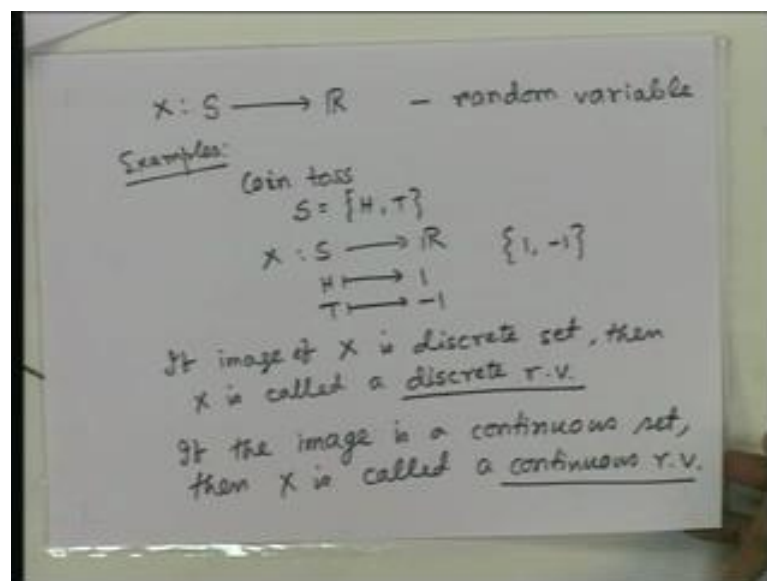 X : S ⟶ ℝ – random variable
Examples:
Coin toss
S = {H, T}
X : S ⟶ ℝ {1, -1}
H ⟼ 1
T ⟼ -1
If image of X is discrete set, then
X is called a discrete r.v.
If the image is a continuous set,
then X is called a continuous r.v.